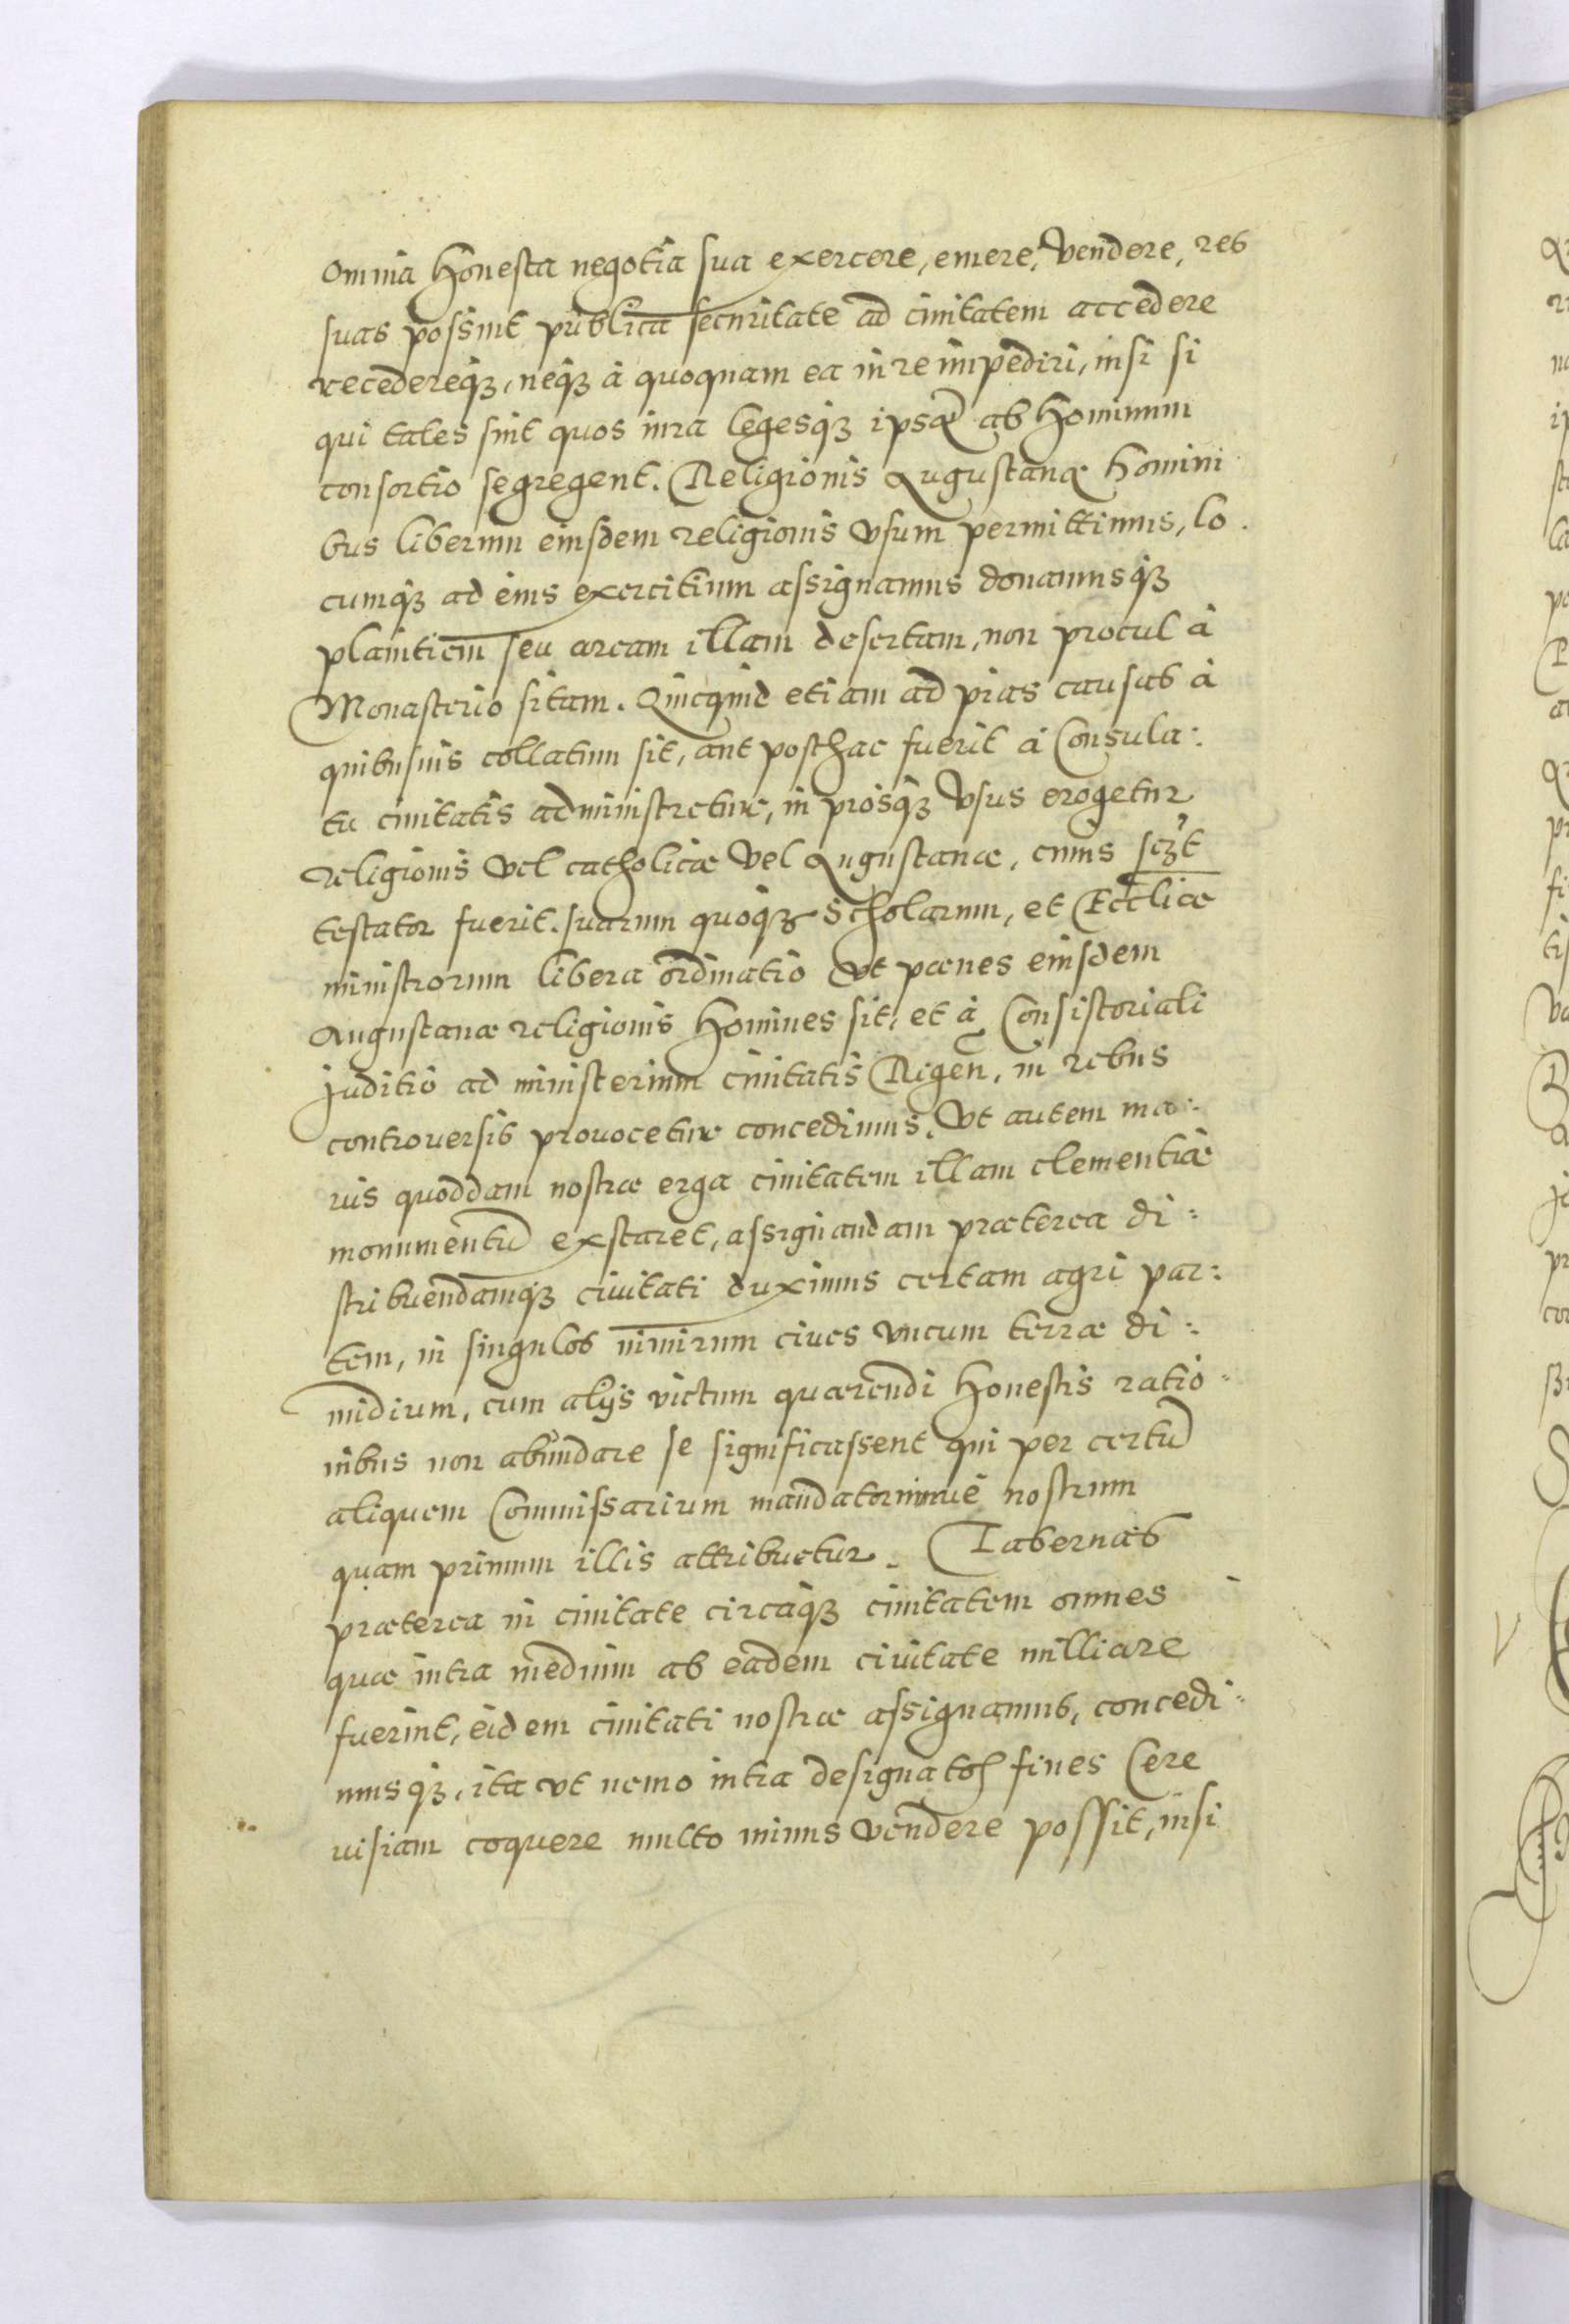 omnia Honesta negotia sua exercere, emere, vendere, res
suas possint publica securitate ad ciuitatem accedere
recedereqȝ, neqȝ à quoquam ea in re impediri, nisi si
qui tales sint quos iura legesqȝ ipsæ ab Hominum
consortio segregent. Religionis Augustanæ Homini
bus liberum eiusdem religionis vsum permittimus, lo
cumqȝ ad eius exercitium assignamus donamusqȝ
planitiem seu aream illam desertam, non procul à
Monasterio sitam. Quicquid etiam ad pias causas à
quibusuis collatum sit, aut posthac fuerit à Consula:
tu ciuitatis administretur, in piosqȝ vsus erogetur
religionis vel catholicæ vel Augustanæ, cuius
testator fuerit. suarum quoqȝ Scholarum, et Eccliæ
ministrorum libera ordinatio vt pænes eiusdem
Augustanæ religionis Homines sit, et à Consistoriali
juditio ad ministerium ciuitatis Rigen, in rebus
controuersis prouocetur concedimus. Vt autem ma:
ius quoddam nostræ erga ciuitatem illam clementiæ
monumentū exstaret, assignandam præterea di:
stribuendamqȝ ciuitati duximus certam agri par:
tem, in singulos nimirum ciues vncum terræ di:
midium, cum alijs victum quærendi Honestis ratio:
nibus non abundare se significassent qui per certū
aliquem Commissarium mandatoriumue nostrum
quam primum illis attribuetur. Tabernas
præterea in ciuitate circaqȝ ciuitatem omnes
quæ intra medium ab eadem ciuitate milliare
fuerint, eidem ciuitati nostræ assignamus, concedi:
musqȝ, ita vt nemo intra designatos fines Cere
uisiam coquere multo minus vendere possit, nisi